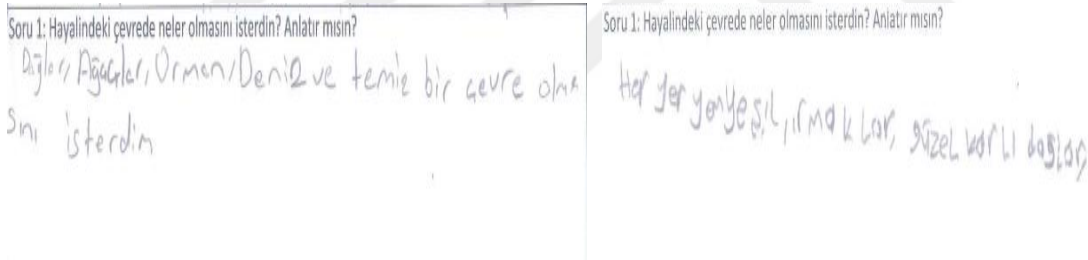 Soru 1: Hayalindeki çevrede neler olmasını isterdin? Anlatır mısın?
Dağlar, Ağaçlar, Orman, Deniz ve temiz bir çevre olma
sını isterdim
Soru 1: Hayalindeki çevrede neler olmasını isterdin? Anlatır mısın?
Her yer yemyeşil, ırmaklar, güzel karlı dağlar,